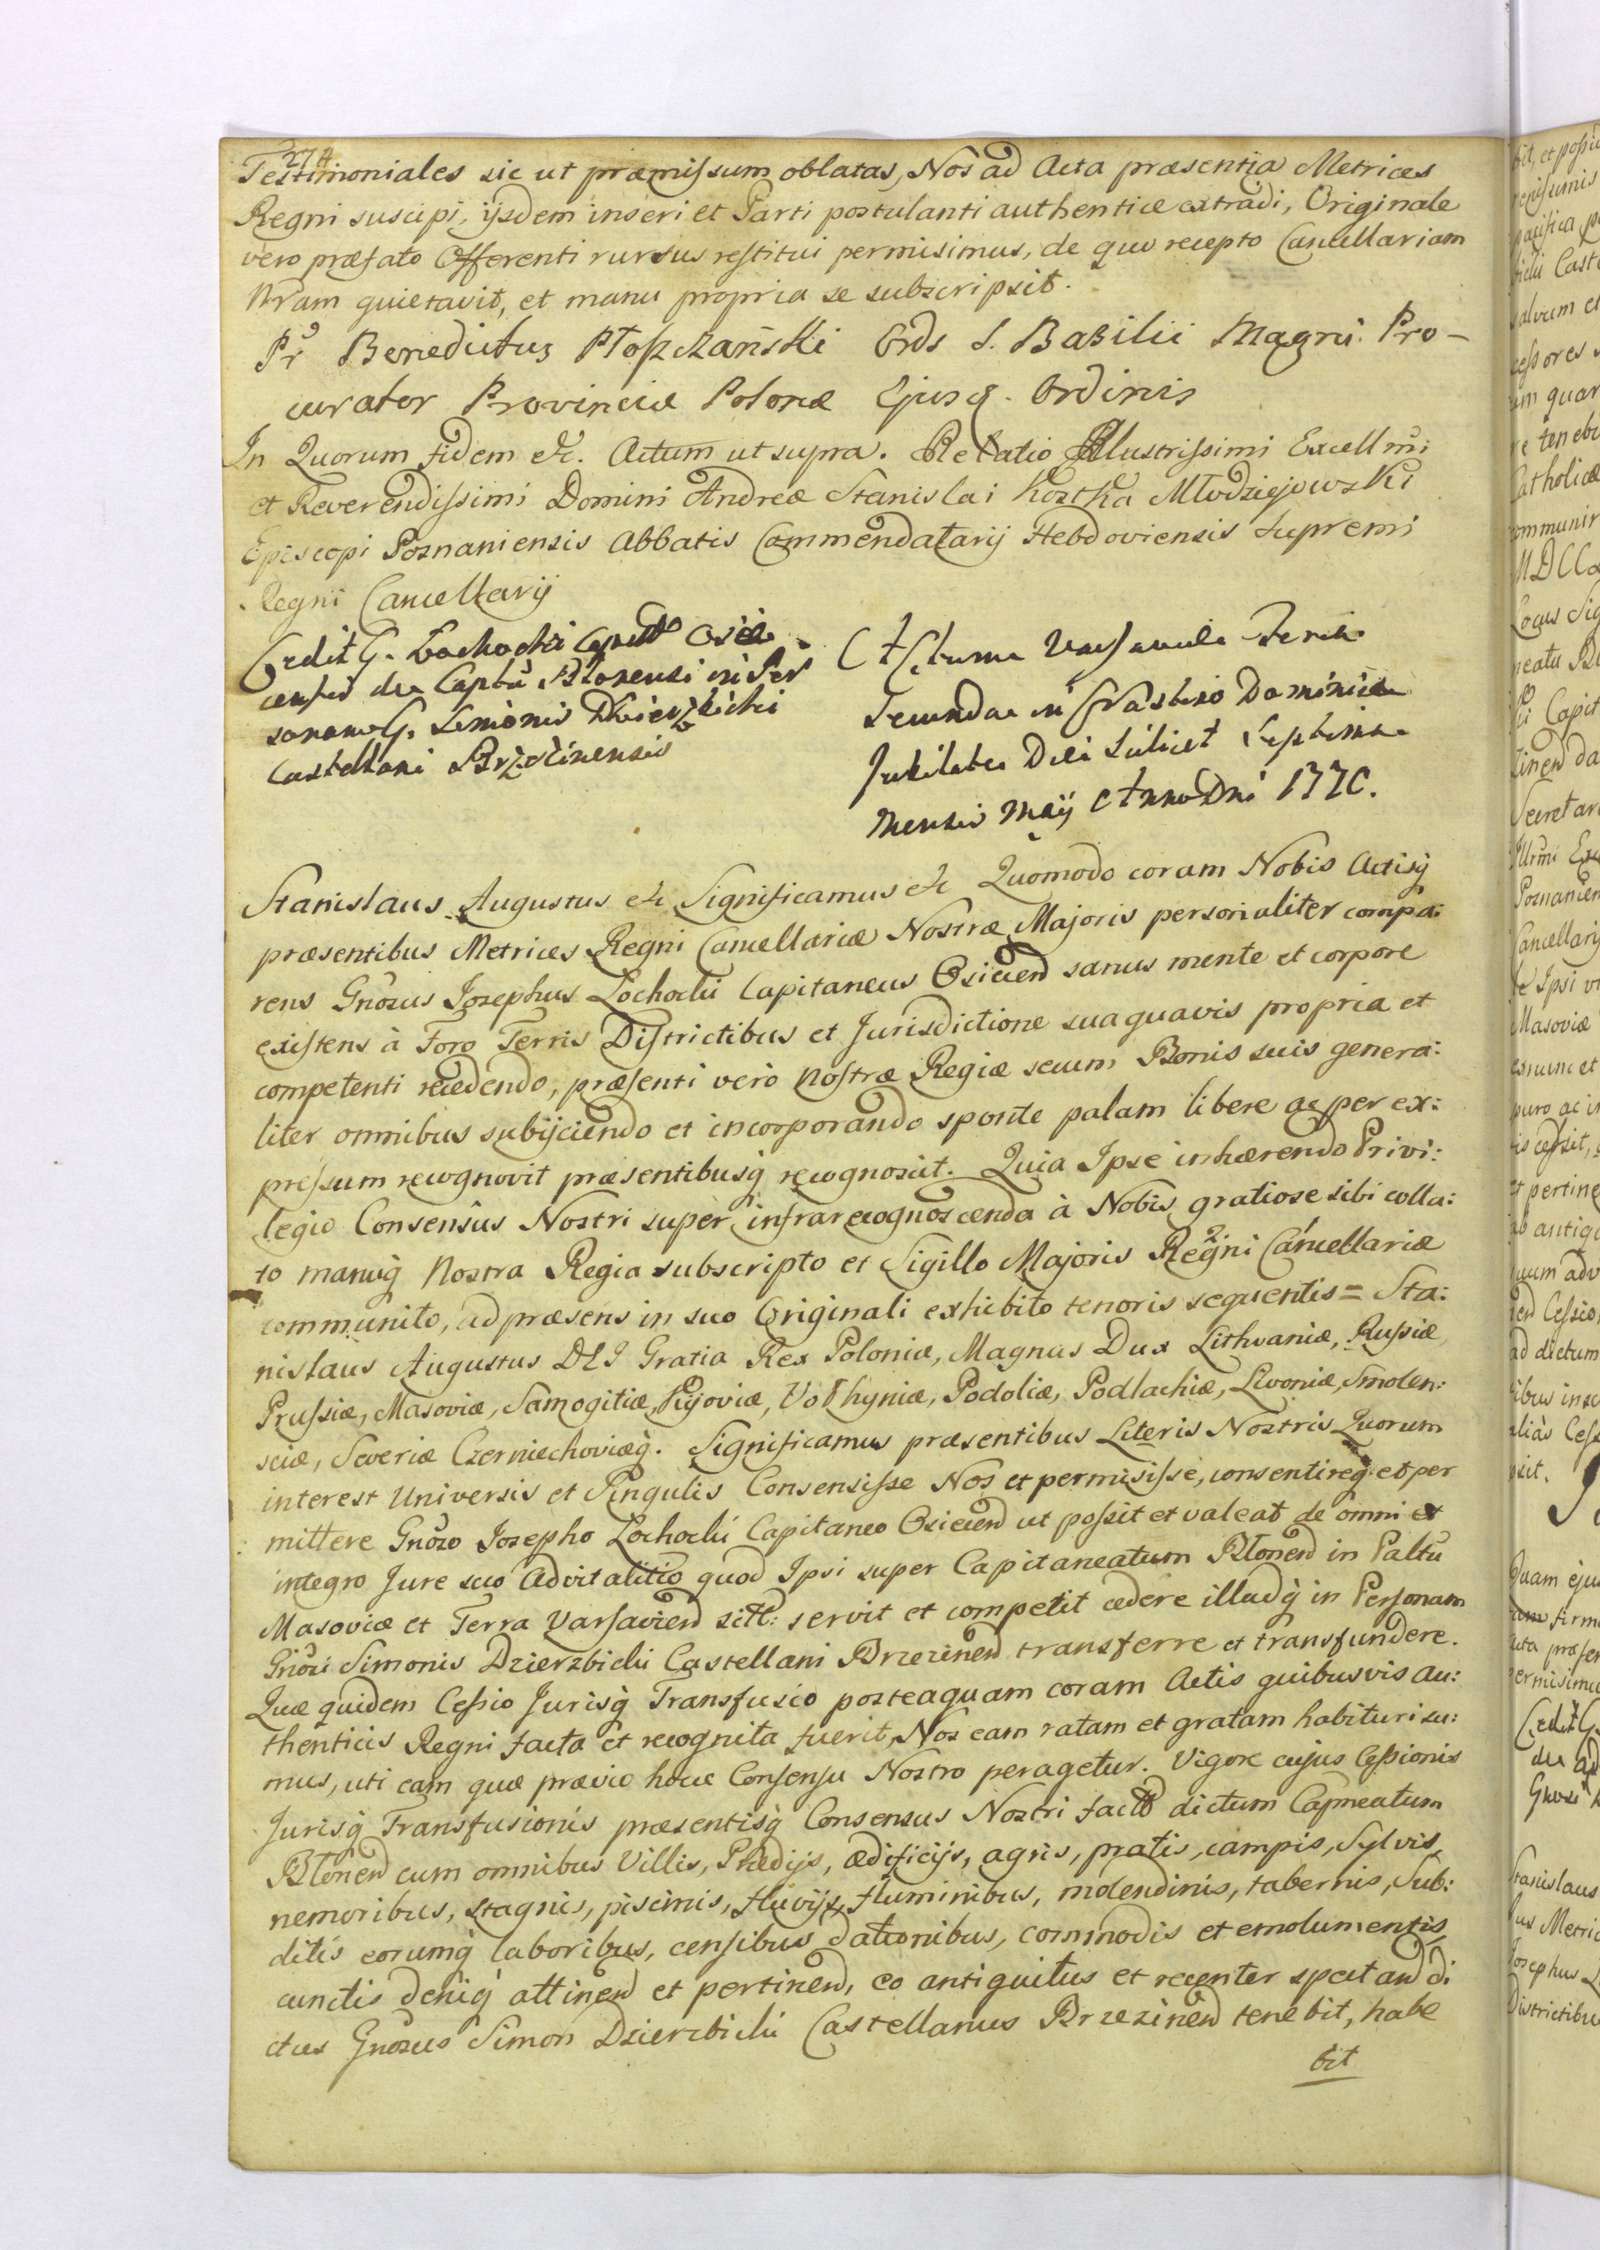 274
Testimoniales sic ut præmissum oblatas, Nos ad Acta præsentia Metrices
Regni suscipi, ijsdem inseri et Parti postulanti authentice extradi, Originale
vero præfato Offerenti rursus restitui permisimus, de quo recepto Cancellariam
Nram quietavit, et manu propria se subscripsit.
Pr Benedictus Płoszczański Ords S. Basilii Magni Pro-
curator Provinciæ Polonæ Ejusq. Ordinis
In Quorum fidem etc. Actum ut supra. Relatio Illustrissimi Excellmi:
et Reverendissimi Domini Andreæ Stanislai Kostka Młodziejowski
Episcopi Posnaniensis Abbatis Commendatarij Hebdoviensis Supremi
Regni Cancellarij
Cedit G. Lochocki Capitt Osie
censis de Captu Blonensi in Per
sonam G. Simonis Dzierzbicki
Castellani Brzezinensis
Actum Varsaviæ Feria
Secunda in Crastino Dominicæ
Jubilate Diei Scilicet Septima
Mensis Maij Anno Dni 1770.
Stanislaus Augustus etc Significamus etc Quomodo coram Nobis Actisq
præsentibus Metrices Regni Cancellariæ Nostræ Majoris personaliter compa:
rens Gnosus Josephus Lochocki Capitaneus Osiecen sanus mente et corpore
existens à Foro Terris Districtibus et Jurisdictione sua quavis propria et
competenti recedendo, præsenti verò Nostræ Regiæ secum Bonis suis genera:
liter omnibus subijciendo et incorporando sponte palam libere ac per ex:
pressum recognovit præsentibusq recognoscit. Quia Ipse inhærendo Privi:
legio Consensûs Nostri super infrarecognoscenda à Nobis gratiose sibi colla:
to manuq Nostra Regia subscripto et Sigillo Majoris Regni Cancellariæ
communito, ad præsens in suo Originali exhibito tenoris sequentis = Sta:
nislaus Augustus DEI Gratia Rex Poloniæ, Magnus Dux Lithvaniæ, Russiæ
Prussiæ, Masoviæ, Samogitiæ, Kijoviæ, Volhyniæ, Podoliæ, Podlachiæ, Livoniæ, Smolen:
sciæ, Severiæ Czerniechoviæq. Significamus præsentibus Literis Nostris Quorum
interest Universis et Singulis Consensisse Nos et permisisse, consentireq et per
mittere Gnoso Josepho Lochocki Capitaneo Osiecen ut possit et valeat de omni et
integro Jure suo Advitalitio quod Ipsi super Capitaneatum Blonen in Paltu
Masoviæ et Terra Varsavien sitt: servit et competit cedere illudq in Personam
Gnosi Simonis Dzierzbicki Castellani Brzezinen transferre et transfundere.
Quæ quidem Cessio Jurisq Transfusio posteaquam coram Actis quibusvis au:
thenticis Regni facta et recognita fuerit, Nos eam ratam et gratam habituri su:
mus, uti eam quæ prævio hocce Consensu Nostro peragetur. Vigore cujus Cessionis
Jurisq Transfusionis præsentisq Consensus Nostri facto dictum Capneatum
Blonen cum omnibus Villis, Prædijs, ædificijs, agris, pratis, campis, Sylvis,
nemoribus, stagnis, piscinis, fluvijs, fluminibus, molendinis, tabernis, Sub:
ditis eorumq laboribus, censibus dationibus, commodis et emolumentis,
cunctis deniq attinen et pertinen, eo antiquitus et recenter spectan di
ctus Gnosus Simon Dzierzbicki Castellanus Brzezinen tenebit, habe
bit